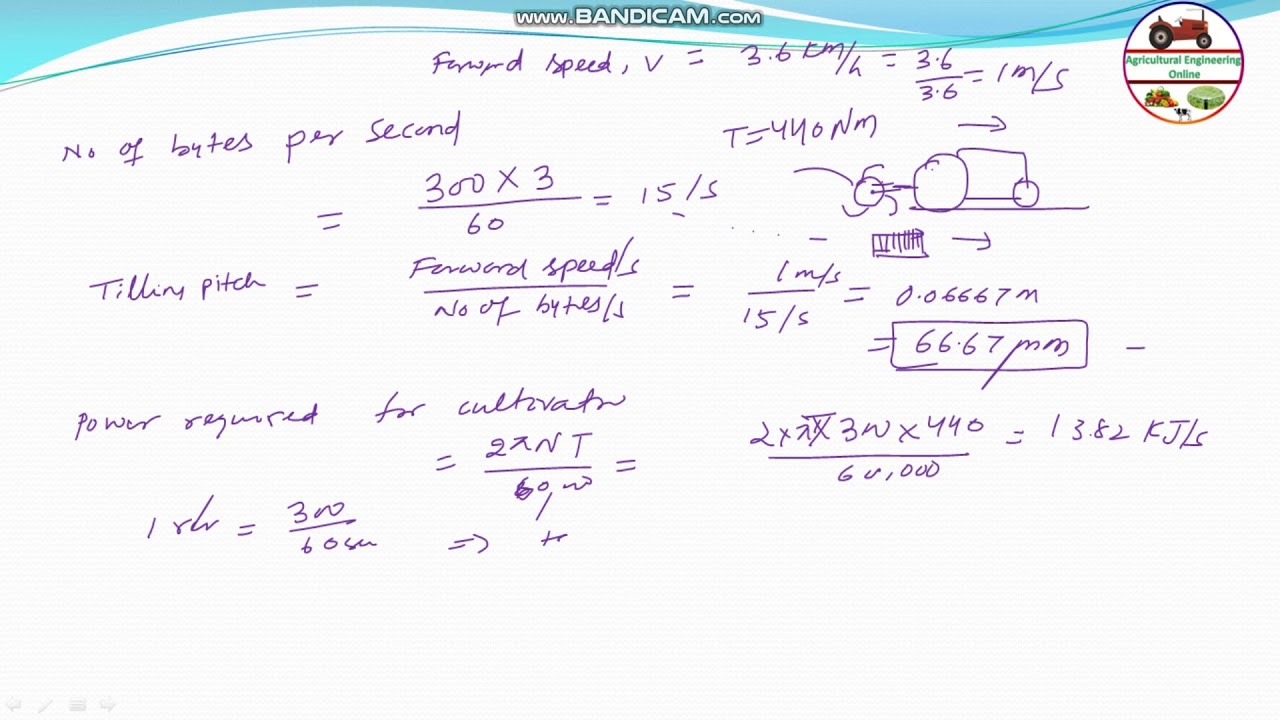 www.BANDICAM.com
Agricultural Engineering
Online
Forward speed, V = 3.6 Km/h = 3.6/3.6 = 1 m/s
No of bytes per second
T=440Nm
= 300 X 3 / 60 = 15/s
Tilling pitch = Forward speed/s / No of bytes/s = 1 m/s / 15/s = 0.06667 m
= 66.67 mm
Power required for cultivator
= 2πNT / 60,000 = 2×π× 300 × 440 / 60,000 = 13.82 KJ/s
1 rev = 300 / 60 sec ⇒